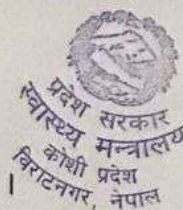 प्रदेश सरकार
स्वास्थ्य मन्त्रालय
कोशी प्रदेश
विराटनगर, नेपाल